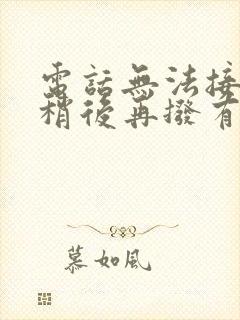 電話無法接
稍後再撥有
慕如風